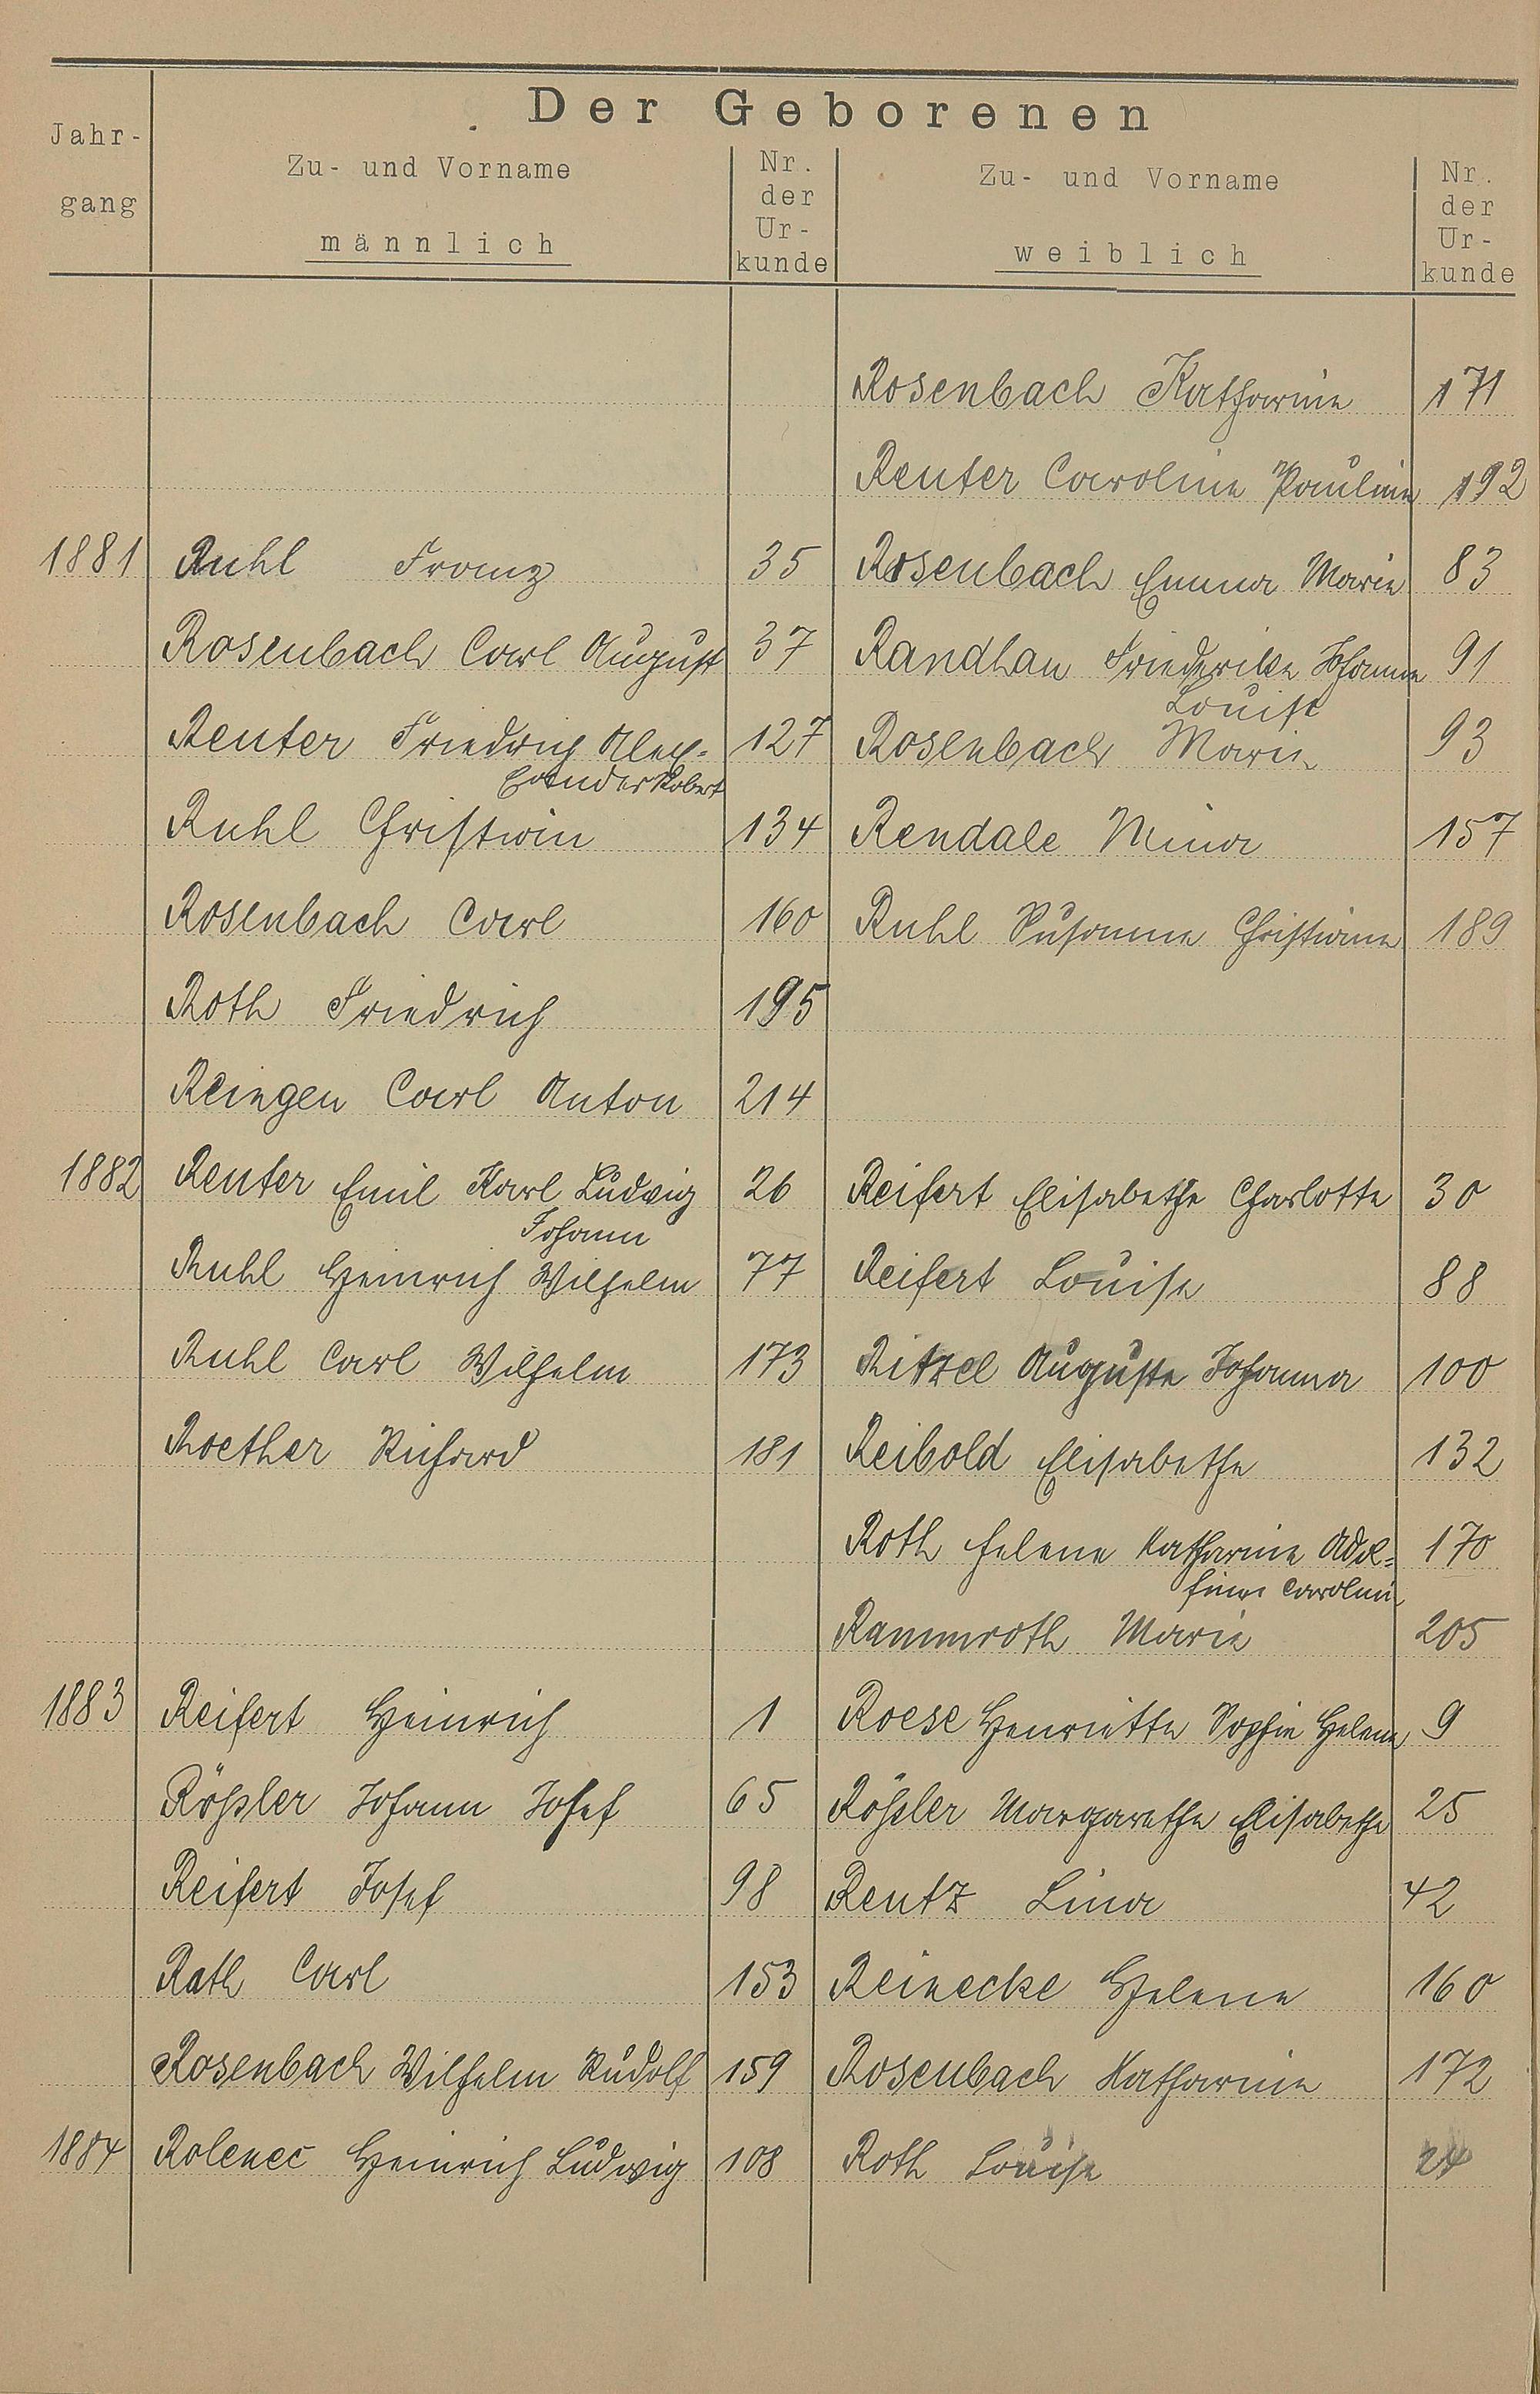 Der Geborenen
Jahr-
gang
Zu- und Vorname
männlich
Nr.
der
Ur-
kunde
Zu- und Vorname
weiblich
Nr.
der
Ur-
kunde
Rosenbach Katharine 171
Reuter Caroline Pauline 192
1881 Ruhl Franz 35 Rosenbach Emma Marie 83
Rosenbach Carl August 37 Randhan Friederike Johanne 91
Louise
Reuter Friedrich Alex- 127 Rosenbach Marie 93
ander Robert
Ruhl Christian 134 Rendale Mina 157
Rosenbach Carl 160 Ruhl Susanne Christiane 189
Roth Friedrich 195
Reingen Carl Anton 214
1882 Reuter Emil Karl Ludwig 26 Reifert Elisabethe Charlotte 30
Johann
Ruhl Heinrich Wilhelm 77 Reifert Louise 88
Ruhl Carl Wilhelm 173 Ritzel Auguste Johanna 100
Roether Richard 181 Reibold Elisabethe 132
Roth Helene Katharine Adol= 170
fine Caroline
Rammroth Marie 205
1883 Reifert Heinrich 1 Roese Henriette Sophie Helene 9
Rößler Johann Josef 65 Rößler Margarethe Elisabethe 25
Reifert Josef 98 Rentz Lina 42
Rath Carl 153 Reinecke Helene 160
Rosenbach Wilhelm Rudolf 159 Rosenbach Katharine 172
1884 Rolenec Heinrich Ludwig 108 Roth Louise